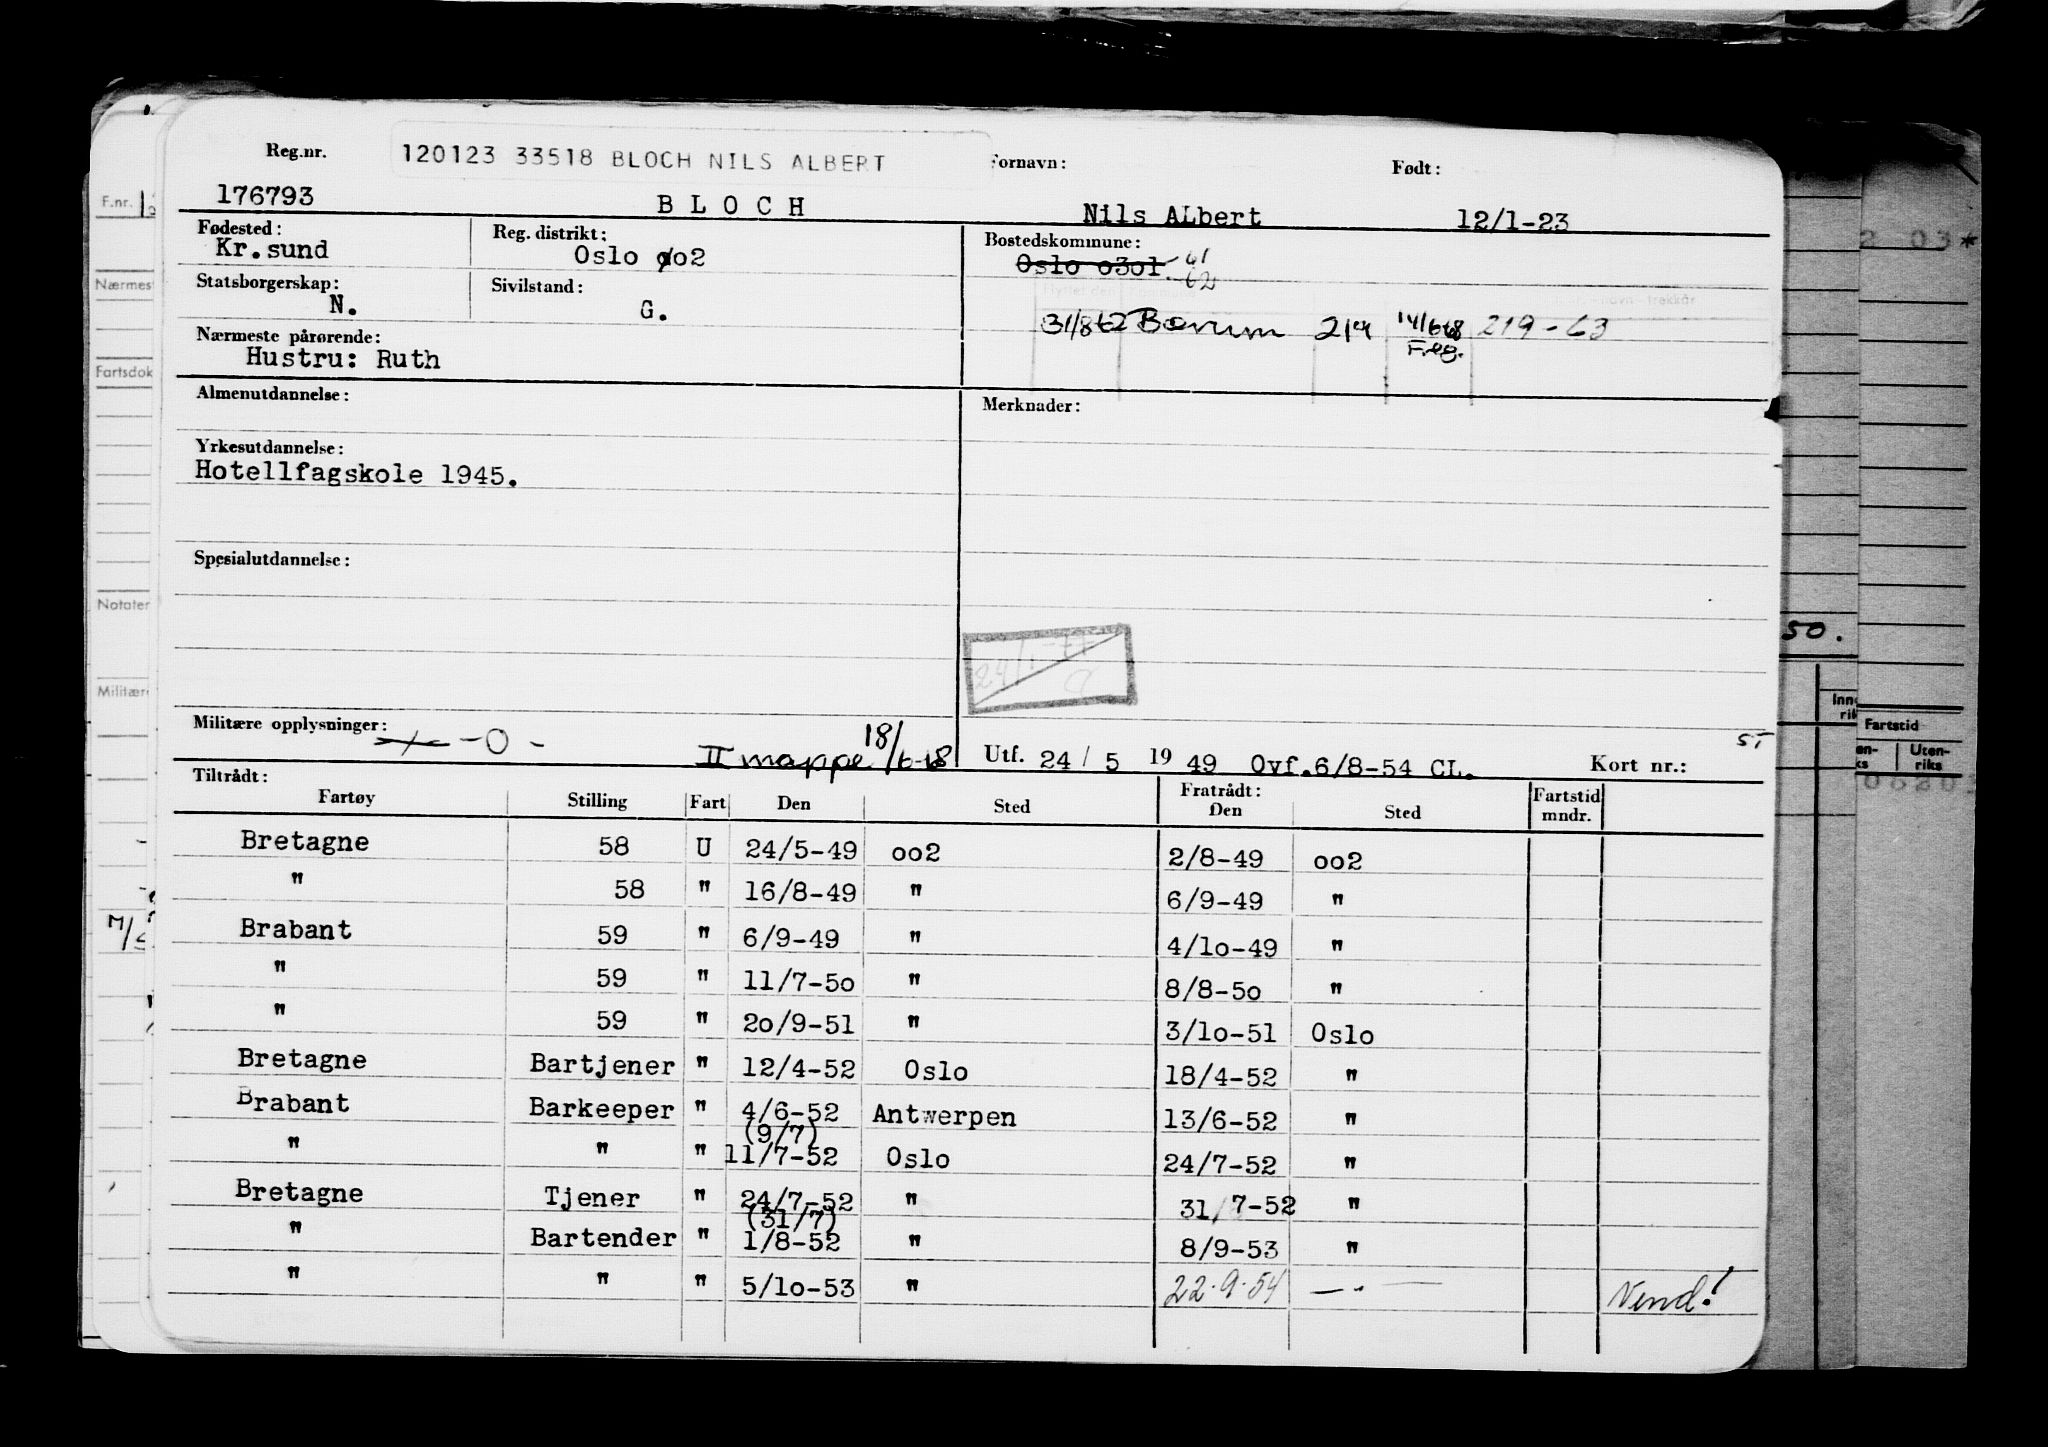 Reg.nr. 120123 33518 BLOCH NILS ALBERT Fornavn: Født:
176793 B L O C H Nils ALbert 12/1-23
Fødested: Reg. distrikt: Bostedskommune:
Kr.sund Oslo oo2 Oslo o3o1 61
62
Statsborgerskap: Sivilstand:
N. G.
31/8 62 Bærum 219 14/6 68 219-63
F.reg.
Nærmeste pårørende:
Hustru: Ruth
Almenutdannelse: Merknader:
Yrkesutdannelse:
Hotellfagskole 1945.
Spesialutdannelse:
24/1-77
Militære opplysninger: -0- II mappe 18/6-68 Utf. 24/ 5 19 49 Ovf.6/8-54 CL. Kort nr.:
Tiltrådt: Fratrådt:
Fartøy Stilling Fart Den Sted Den Sted Fartstid mndr.
Bretagne 58 U 24/5-49 oo2 2/8-49 oo2
" 58 " 16/8-49 " 6/9-49 "
Brabant 59 " 6/9-49 " 4/1o-49 "
" 59 " 11/7-5o " 8/8-5o "
" 59 " 2o/9-51 " 3/1o-51 Oslo
Bretagne Bartjener " 12/4-52 Oslo 18/4-52 "
Brabant Barkeeper " 4/6-52 Antwerpen 13/6-52 "
(9/7)
" " " 11/7-52 Oslo 24/7-52 "
Bretagne Tjener " 24/7-52 " 31/7-52 "
(31/7)
" Bartender " 1/8-52 " 8/9-53 "
" " " 5/1o-53 " 22.9.54 —"— Vend!
F.nr.
Nærmest
Fartsdok
Notater
Militære
50.
Fartstid
Uten-
riks